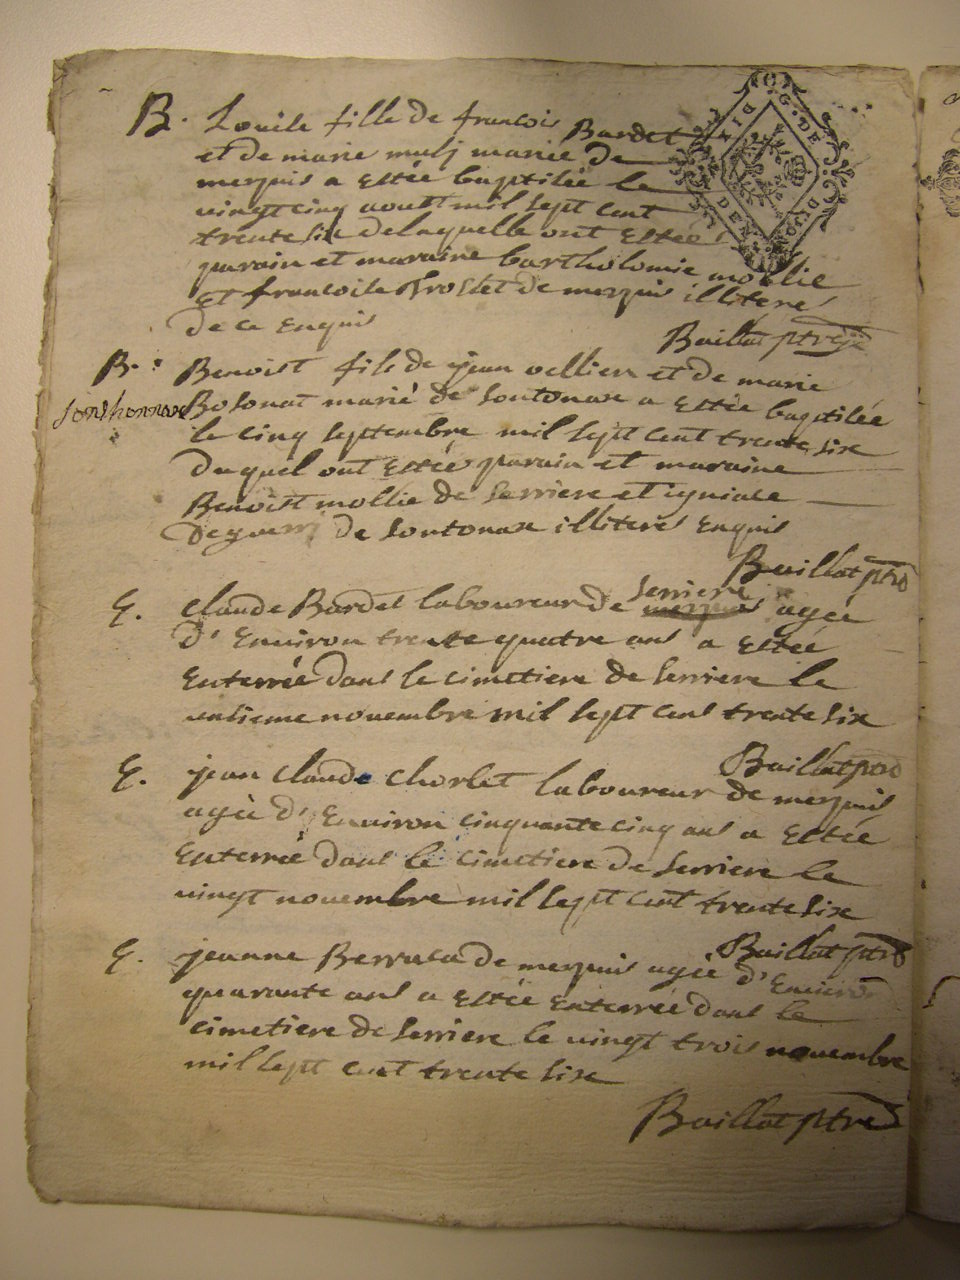 B. Louise fille de francois Bardet
et de marie mulj mariée de
merpuis a estée baptisée le
vingt cinq aoust mil sept cent
trente six de laquelle ont estées
parain et maraine bartholomie mollie
et francoise Brostet de merpuis illiteres
de ce enquis
Baillat ptre
B. Benoist fils de jean vellien et de marie
Sonthonnax Bosonat marié de sontonax a estée baptisée
le cinq septembre mil sept cent trente six
duquel ont estée parain et maraine
Benoist mollie de serriere et
de sontonax illiteres enquis
Baillat ptre
E. claude Bardet laboureur de serriere agée
d'environ trente quatre ans a estée
enterrée dans le cimetiere de serriere le
unsieme novembre mil sept cens trente six
Baillat ptre
E. jean claude chorlet laboureur de merpuis
agée d'environ cinquante cinq ans a estée
enterrée dans le cimetiere de serriere le
vingt novembre mil sept cent trente six
Baillat ptre
E. jeanne Berrasa de merpuis agée d'environ
quarante ans a estée enterrée dans le
cimetiere de serriere le vingt trois novembre
mil sept cent trente six
Baillat ptre
G. DE DIJON
DIX DEN.